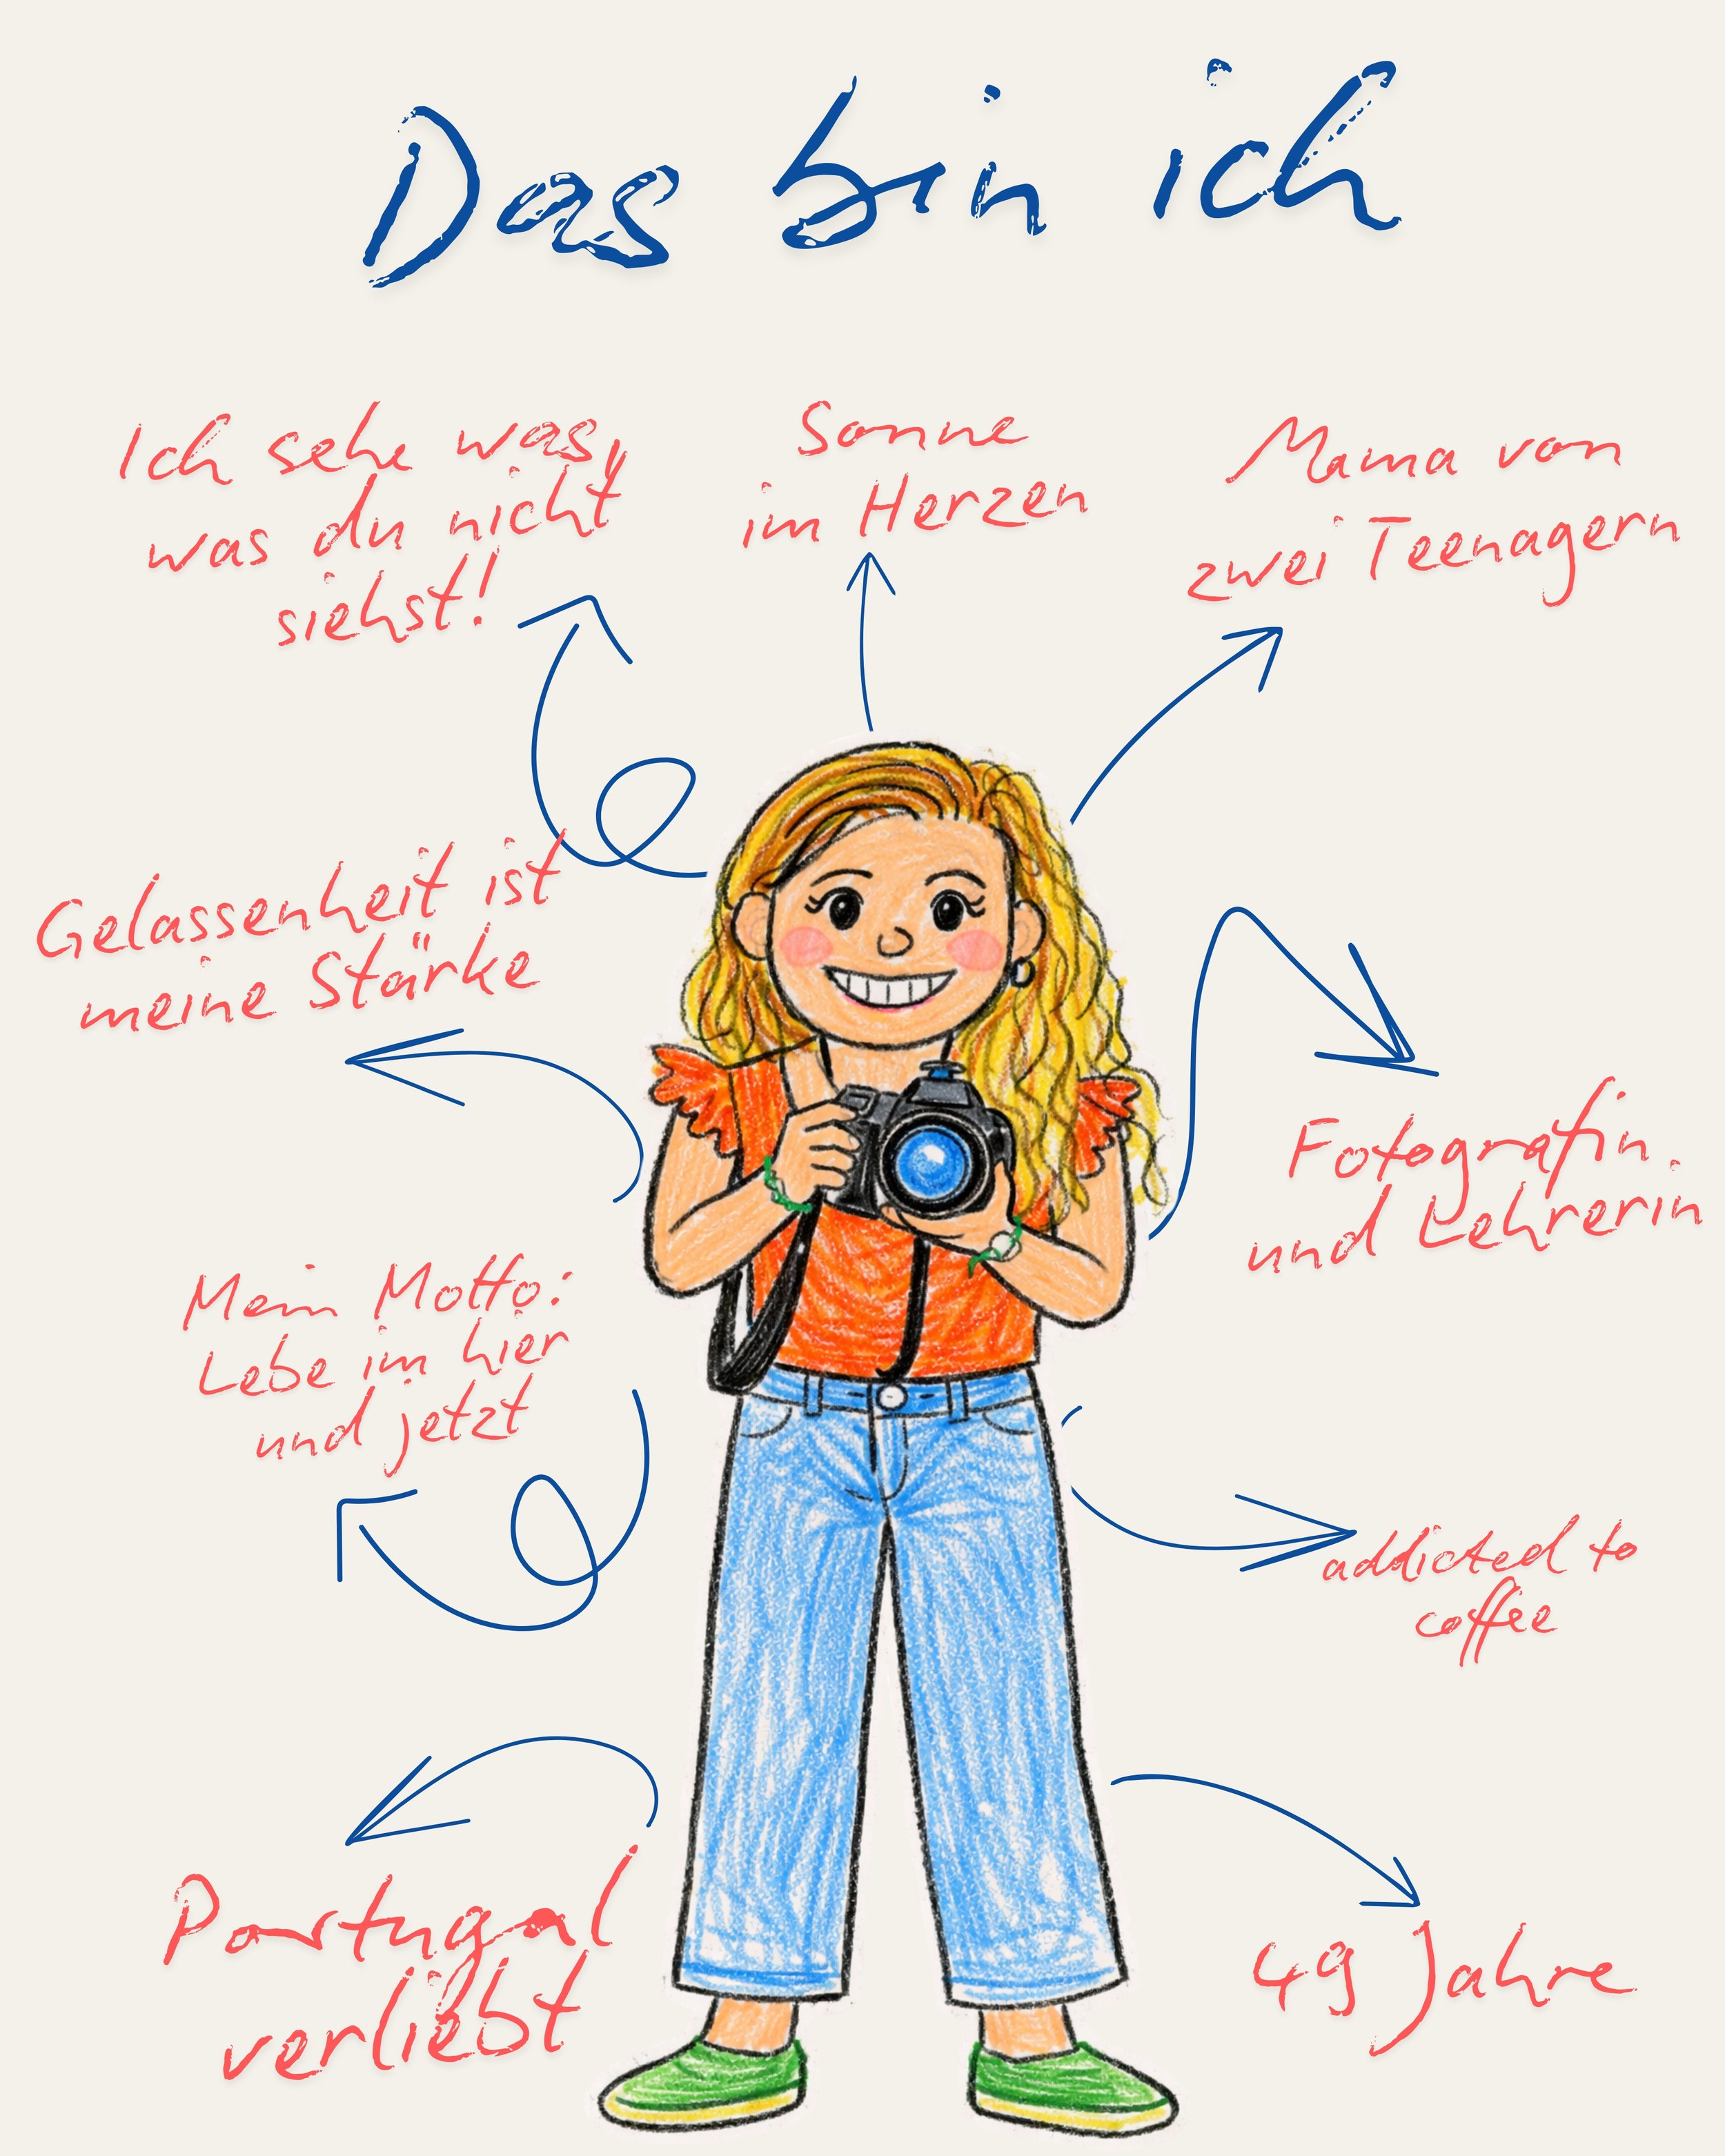 Das bin ich
Ich sehe was,
was du nicht
siehst!
Sonne
im Herzen
Mama von
zwei Teenagern
Gelassenheit ist
meine Stärke
Fotografin
und Lehrerin
Mein Motto:
Lebe im hier
und jetzt
addicted to
coffee
Portugal
verliebt
49 Jahre